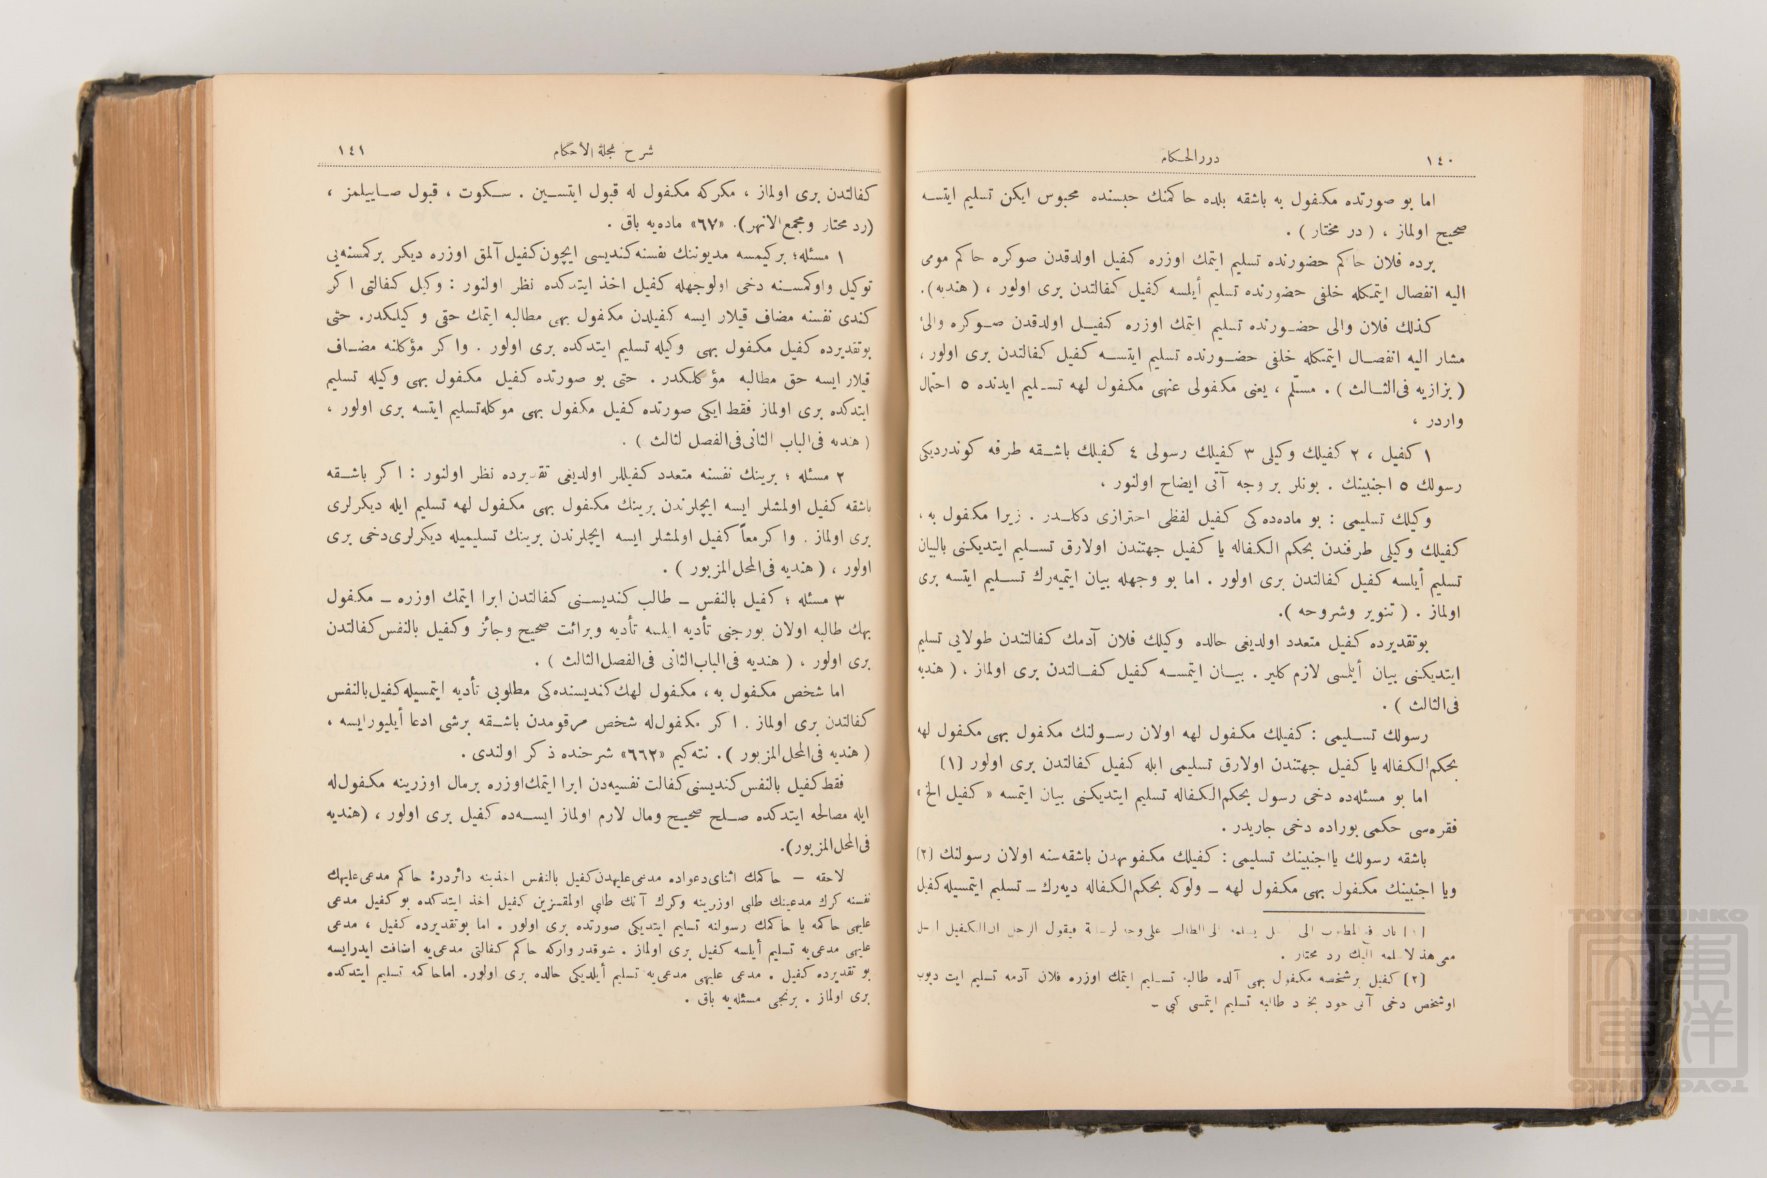 ١٤٠
درر الحكام
اما بو صورتده مكفول به باشقه بلده حاكمنك حبسنده محبوس ايكن تسليم ايتسه
صحيح اولماز ، ( در مختار ) .
برده فلان حاكم حضورنده تسليم ايتمك اوزره كفيل اولدقدن صوكره حاكم مومى
اليه انفصال ايتمكله خلفى حضورنده تسليم أيلسه كفيل كفالتدن برى اولور ، ( هنديه ).
كذلك فلان والى حضورنده تسليم ايتمك اوزره كفيل اولدقدن صوكره والئ
مشار اليه انفصال ايتمكله خلفى حضورنده تسليم ايتسه كفيل كفالتدن برى اولور ،
( بزازيه فى الثالث ) . مسلّم ، يعنى مكفولى عنهى مكفول لهه تسليم ايدنده ٥ احتمال
واردر ،
١ كفيل ، ٢ كفيلك وكيلى ٣ كفيلك رسولى ٤ كفيلك باشقه طرفه كوندرديكى
رسولك ٥ اجنبينك . بونلر بر وجه آتى ايضاح اولنور ،
وكيلك تسليمى : بو ماده‌ده‌كى كفيل لفظى احترازى دكلدر . زيرا مكفول به ،
كفيلك وكيلى طرفندن بحكم الكفاله يا كفيل جهتندن اولارق تسليم ايتديكنى بالبيان
تسليم أيلسه كفيل كفالتدن برى اولور . اما بو وجهله بيان ايتميه‌رك تسليم ايتسه برى
اولماز . ( تنوير وشروحه ).
بوتقديرده كفيل متعدد اولديغى حالده وكيلك فلان آدمك كفالتندن طولايى تسليم
ايتديكنى بيان أيلمسى لازم كلير . بيان ايتمسه كفيل كفالتدن برى اولماز . ( هنديه
فى الثالث ) .
رسولك تسليمى : كفيلك مكفول لهه اولان رسولنك مكفول بهى مكفول لهه
بحكم الكفاله يا كفيل جهتندن اولارق تسليمى ايله كفيل كفالتدن برى اولور (١)
اما بو مسئله‌ده دخى رسول بحكم الكفاله تسليم ايتديكنى بيان ايتمسه « كفيل الخ »
فقره‌سى حكمى بوراده دخى جاريدر .
باشقه رسولك يا اجنبينك تسليمى : كفيلك مكفول لهدن باشقه‌سنه اولان رسولنك (٢)
ويا اجنبينك مكفول بهى مكفول لهه ــ ولوكه بحكم الكفاله ديه‌رك ــ تسليم ايتمسيله كفيل
(٢) كفيل بر شخصه مكفول بهى آلده طالبه تسليم ايتمك اوزره فلان آدمه تسليم ايت ديوب
اوشخص دخى آنى طالبه تسليم ايتمسى كبى ــ
شرح مجلة الاحكام
١٤١
كفالتدن برى اولماز ، مكركه مكفول له قبول ايتسين . سكوت ، قبول صاييلمز ،
(رد محتار ومجمع الانهر). «٦٧» ماده‌يه باق .
١ مسئله؛ بر كيمسه مديوننك نفسنه كنديسى ايچون كفيل آلمق اوزره ديكر بر كمسنه‌يى
توكيل واوكمسنه دخى اولوجهله كفيل اخذ ايتدكده نظر اولنور : وكيل كفالتى اكر
كندى نفسنه مضاف قيلار ايسه كفيلدن مكفول بهى مطالبه ايتمك حقى وكيلكدر. حتى
بوتقديرده كفيل مكفول بهى وكيله تسليم ايتدكده برى اولور . واكر مؤكلنه مضاف
قيلار ايسه حق مطالبه مؤكلكدر . حتى بو صورتده كفيل مكفول بهى وكيله تسليم
ايتدكده برى اولماز فقط ايكى صورتده كفيل مكفول بهى موكله تسليم ايتسه برى اولور ،
( هنديه فى الباب الثانى فى الفصل الثالث ) .
٢ مسئله ؛ برينك نفسنه متعدد كفيللر اولديغى تقديرده نظر اولنور : اكر باشقه
باشقه كفيل اولمشلر ايسه ايچلرندن برينك مكفول بهى مكفول لهه تسليم ايله ديكرلرى
برى اولماز . واكر معاً كفيل اولمشلر ايسه ايچلرندن برينك تسليميله ديكرلرى دخى برى
اولور ، ( هنديه فى المحل المزبور ) .
٣ مسئله ؛ كفيل بالنفس ــ طالب كنديسنى كفالتدن ابرا ايتمك اوزره ــ مكفول
بهك طالبه اولان بورجنى تأديه ايلسه تأديه وبرائت صحيح وجائز وكفيل بالنفس كفالتدن
برى اولور ، ( هنديه فى الباب الثانى فى الفصل الثالث ) .
اما شخص مكفول به ، مكفول لهك كنديسنده‌كى مطلوبى تأديه ايتمسيله كفيل بالنفس
كفالتدن برى اولماز . اكر مكفول له شخص مرقومدن باشقه برشى ادعا أيليور ايسه ،
( هنديه فى المحل المزبور ). نته‌كيم «٦٦٢» شرحنده ذكر اولندى .
فقط كفيل بالنفس كنديسنى كفالت نفسيه‌دن ابرا ايتمك اوزره برمال اوزرينه مكفول له
ايله مصالحه ايتدكده صلح صحيح ومال لازم اولماز ايسه‌ده كفيل برى اولور ، (هنديه
فى المحل المزبور).
لاحقه ــ حاكمك اثناى دعواده مدعى عليهدن كفيل بالنفس اخذينه دائردر: حاكم مدعى عليهك
نفسنه كرك مدعينك طلبى اوزرينه وكرك آنك طلبى اولمقسزين كفيل اخذ ايتدكده بو كفيل مدعى
عليهى حاكمه يا حاكمك رسولنه تسليم ايتديكى صورتده برى اولور . اما بوتقديرده كفيل ، مدعى
عليهى مدعى‌يه تسليم أيلسه كفيل برى اولماز . شوقدر واركه حاكم كفالتى مدعى‌يه اضافت ايدرايسه
بو تقديرده كفيل . مدعى عليهى مدعى‌يه تسليم أيلديكى حالده برى اولور. اما حاكمه تسليم ايتدكده
برى اولماز . برنجى مسئله‌يه باق .
TOYO BUNKO
東洋文庫
TOYO BUNKO